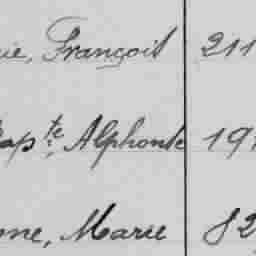 ie, François 211
Bapte, Alphonse 19
nne, Marie 82